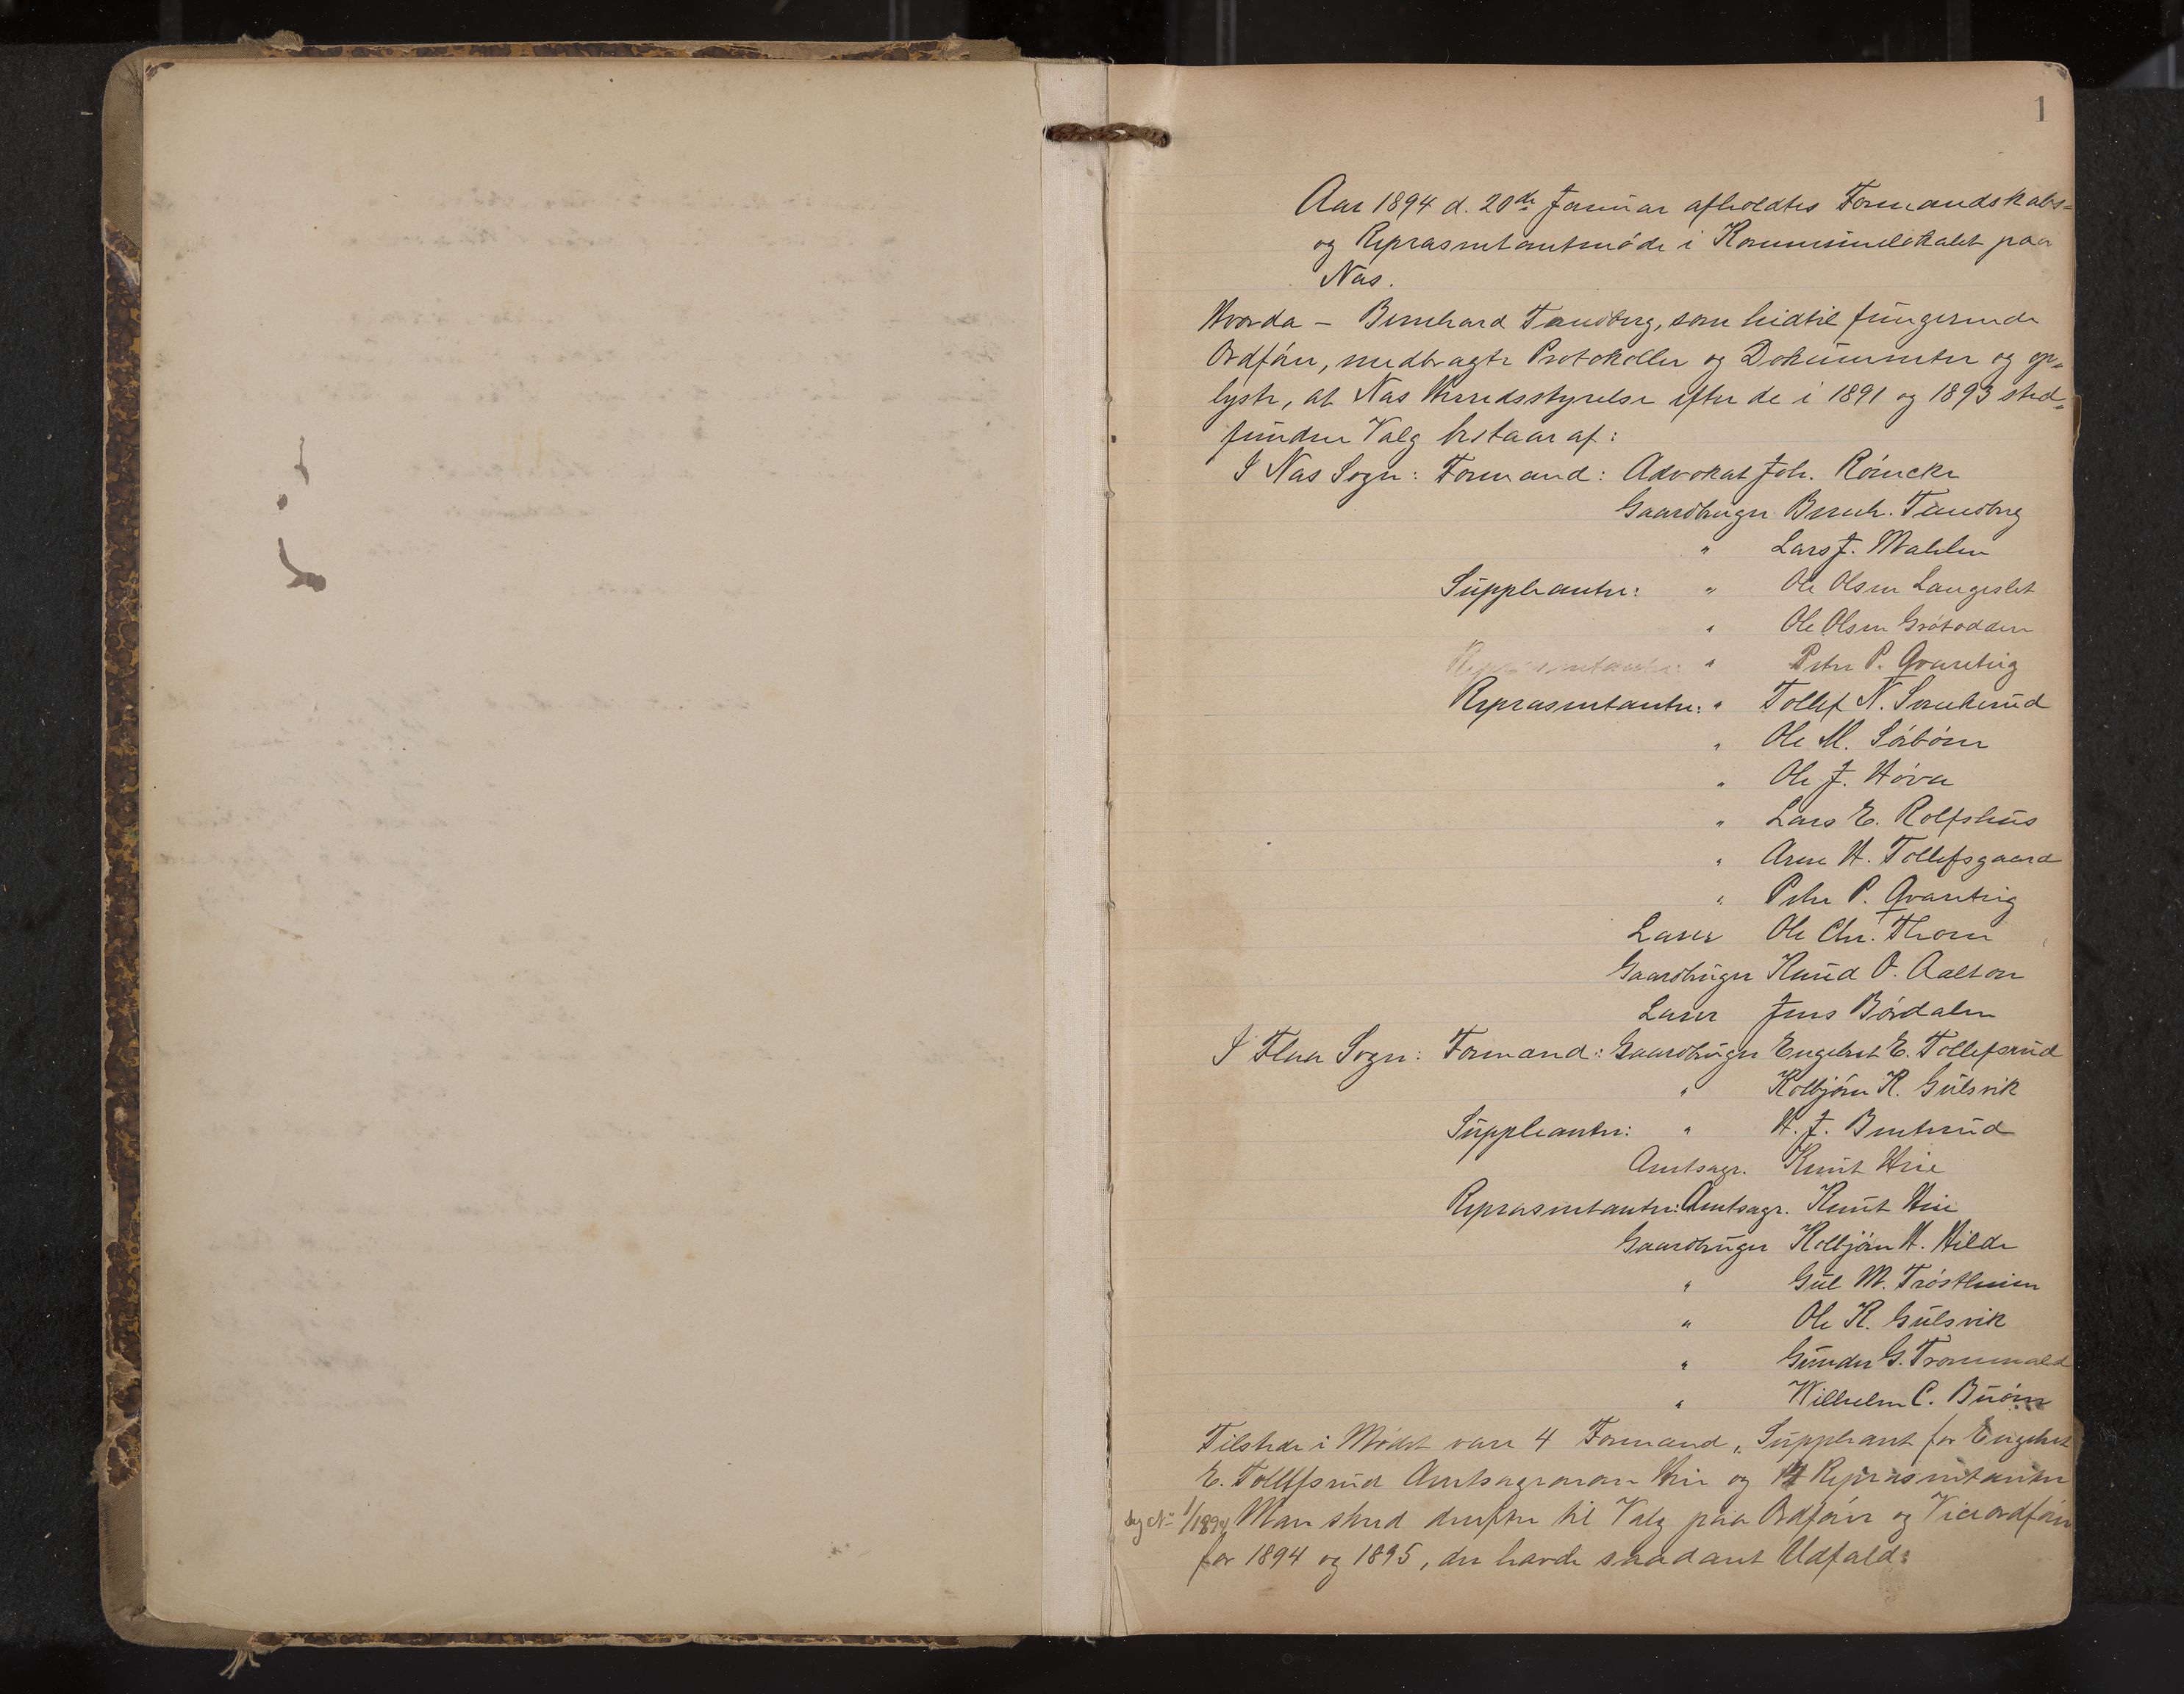 1
Aar 1894 d. 20de Januar afholdtes Formandskabs=
og Repræsentantmøde i Kommunelokalet paa
Næs.
Hvorda – Bernhard Tandberg, som hidtil fungerende
Ordfører, medbragte Protokoller og Dokumenter og op=
lyste, at Næs Herredsstyrelse efter de i 1891 og 1893 sted=
fundne Valg bestaar af:
I Næs Sogn: Formænd: Advokat Joh. Rómcke
Gaardbruger Bernh. Tandberg
" Lars J. Mahlen
Suppleanter: " Ole Olsen Langeslet
" Ole Olsen Grótodden
Repræsentanter: " Peter P. Qvarteig
Repræsentanter: " Tollef N. Smukerud
" Ole M. Sórbóen
" Ole J. Hóva
" Lars E. Rolfshus
" Arne H. Tollefsgaard
" Peter P. Qvarteig
Lærer Ole Chr. Thoen
Gaardbruger Knud O. Aalton
Lærer Jens Bórdalen
I Flaa Sogn: Formænd: Gaardbruger Engebret E. Tollefsrud
" Kolbjórn K. Gulsvik
Suppleanter: " H. J. Bentsrud
Amtsagr. Knut Hie
Repræsentanter: Amtsagr. Knut Hie
Gaardbruger Kolbjórn H. Hilde
" Gul M. Tróstheim
" Ole K. Gulsvik
" Gunder G. Trommald
" Wilhelm C. Buóen
Tilstede i Mødet vare 4 Formænd, Suppleant for Engebret
E. Tollefsrud Amtsagronom Hie og Repræsentanter
Sag No 1/1894 Man skred derefter til Valg paa Ordfører og Viceordfører
for 1894 og 1895, der havde saadant Udfald: